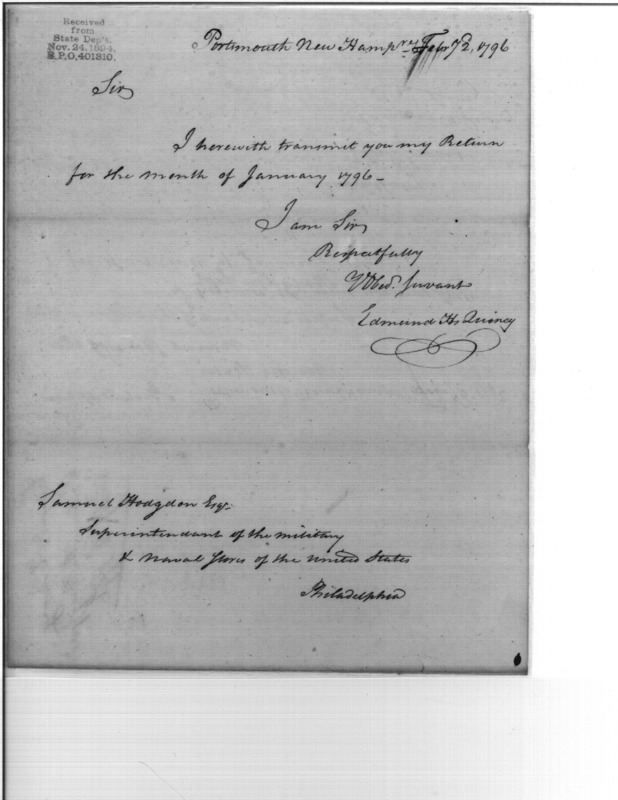 Received
from
State Dep't.
Nov. 24, 1894,
R.P.O, 401810.
Portsmouth New Hampre. Febry 2, 1796
Sir,
I herewith transmit you my Return
for the month of January 1796 -
I am Sir,
Respectfully
Y Obedt. Servant
Edmund H. Quincy
Samuel Hodgdon Esqr.
Superintendant of the military
& Naval Stores of the United States
Philadelphia